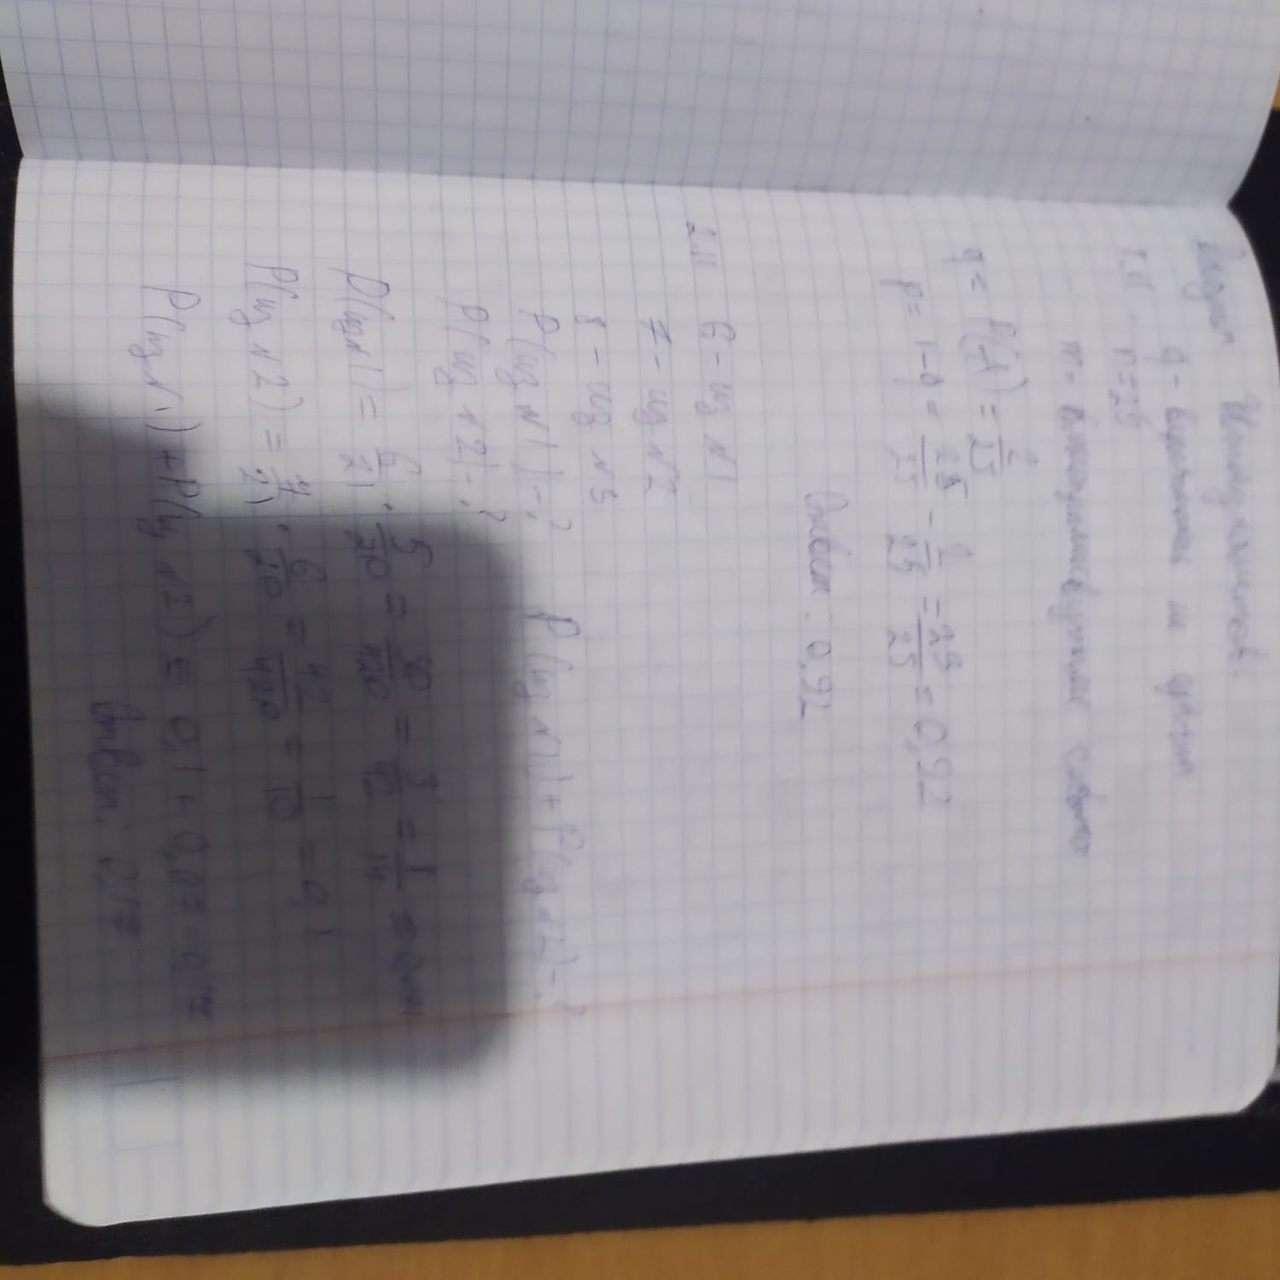 1.11 q - вероятность не
n=25
m=
q = P(A) = 2/25
p = 1-q = 25/25 - 2/25 = 23/25 = 0,92
Ответ: 0,92
2.11 6 - из №1
7 - из №2
8 - из №3
P(из №1)-? P(из №1)+P(из №2)-?
P(из №2)-?
P(из №1) = 6/21 · 5/20 = 30/420 = 3/42 = 1/14 =
P(из №2) = 7/21 · 6/20 = 42/420 = 1/10 = 0,1
P(из №1)+P(из №2) = 0,1+0,07=0,17
Ответ: 0,17